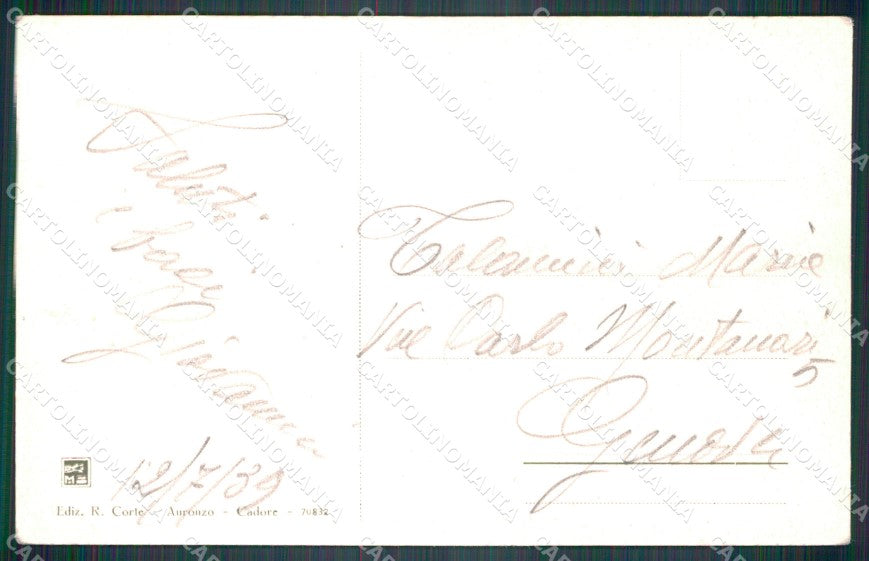 Saluti
baci
Giovanni
12/7/39
Ediz. R. Corte - Auronzo - Cadore - 70832
Talamini Maria
Via Carlo Montanari
5
Genova
CARTOLINOMANIA